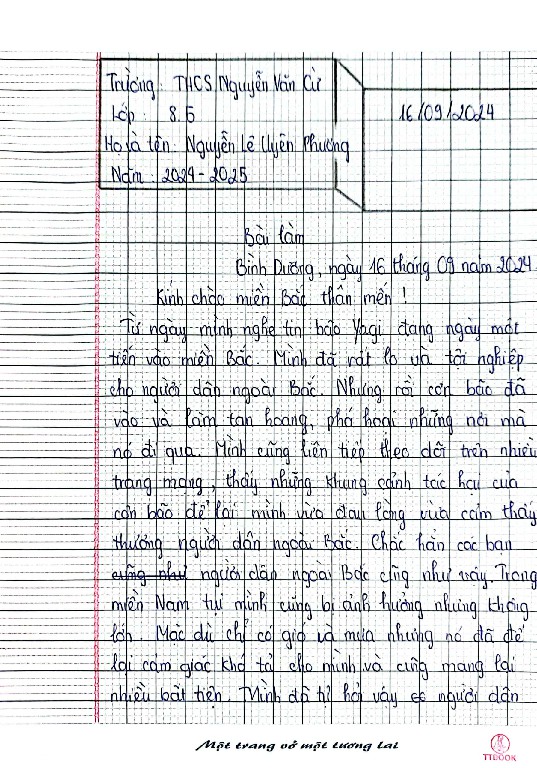 Trường: THCS Nguyễn Văn Cừ
Lớp: 8.5
Họ và tên: Nguyễn Lê Uyên Phương
Năm: 2024-2025
16/09/2024
Bài làm
Bình Dương, ngày 16 tháng 09 năm 2024
Kính chào miền Bắc thân mến!
Từ ngày mình nghe tin bão Yagi đang ngày một
tiến vào miền Bắc. Mình đã rất lo và tội nghiệp
cho người dân ngoài Bắc. Nhưng rồi cơn bão đã
vào và làm tan hoang, phá hoại những nơi mà
nó đi qua. Mình cũng liên tiếp theo dõi trên nhiều
trang mạng, thấy những khung cảnh tác hại của
cơn bão để lại mình vừa đau lòng vừa cảm thấy
thương người dân ngoài Bắc. Chắc hẳn các bạn
cũng như người dân ngoài Bắc cũng như vậy. Trong
miền Nam tụi mình cũng bị ảnh hưởng nhưng không
lớn. Mặc dù chỉ có gió và mưa nhưng nó đã để
lại cảm giác khó tả cho mình và cũng mang lại
nhiều bất tiện. Mình đã tự hỏi vậy người dân
Một trang vở một tương lai
TIBOOK